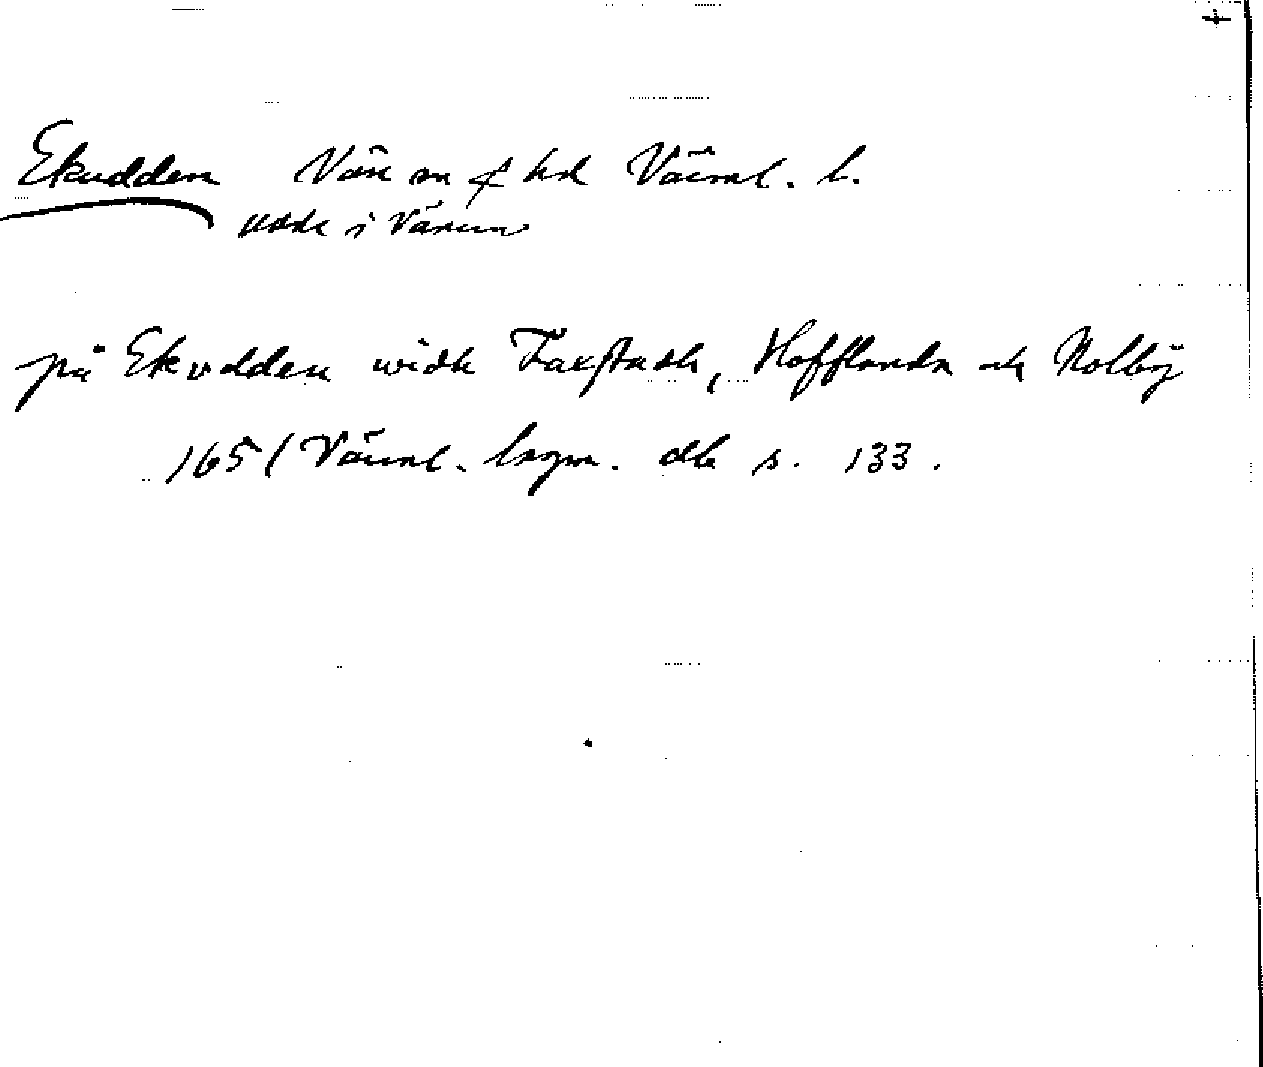 Ekudden Väse sn o hd Värml. l.
udde i Vänern
på Ekudden widh Taxstadh, Hofflanda och Nolbÿ
1651 Värml. lsgm. db s. 133.